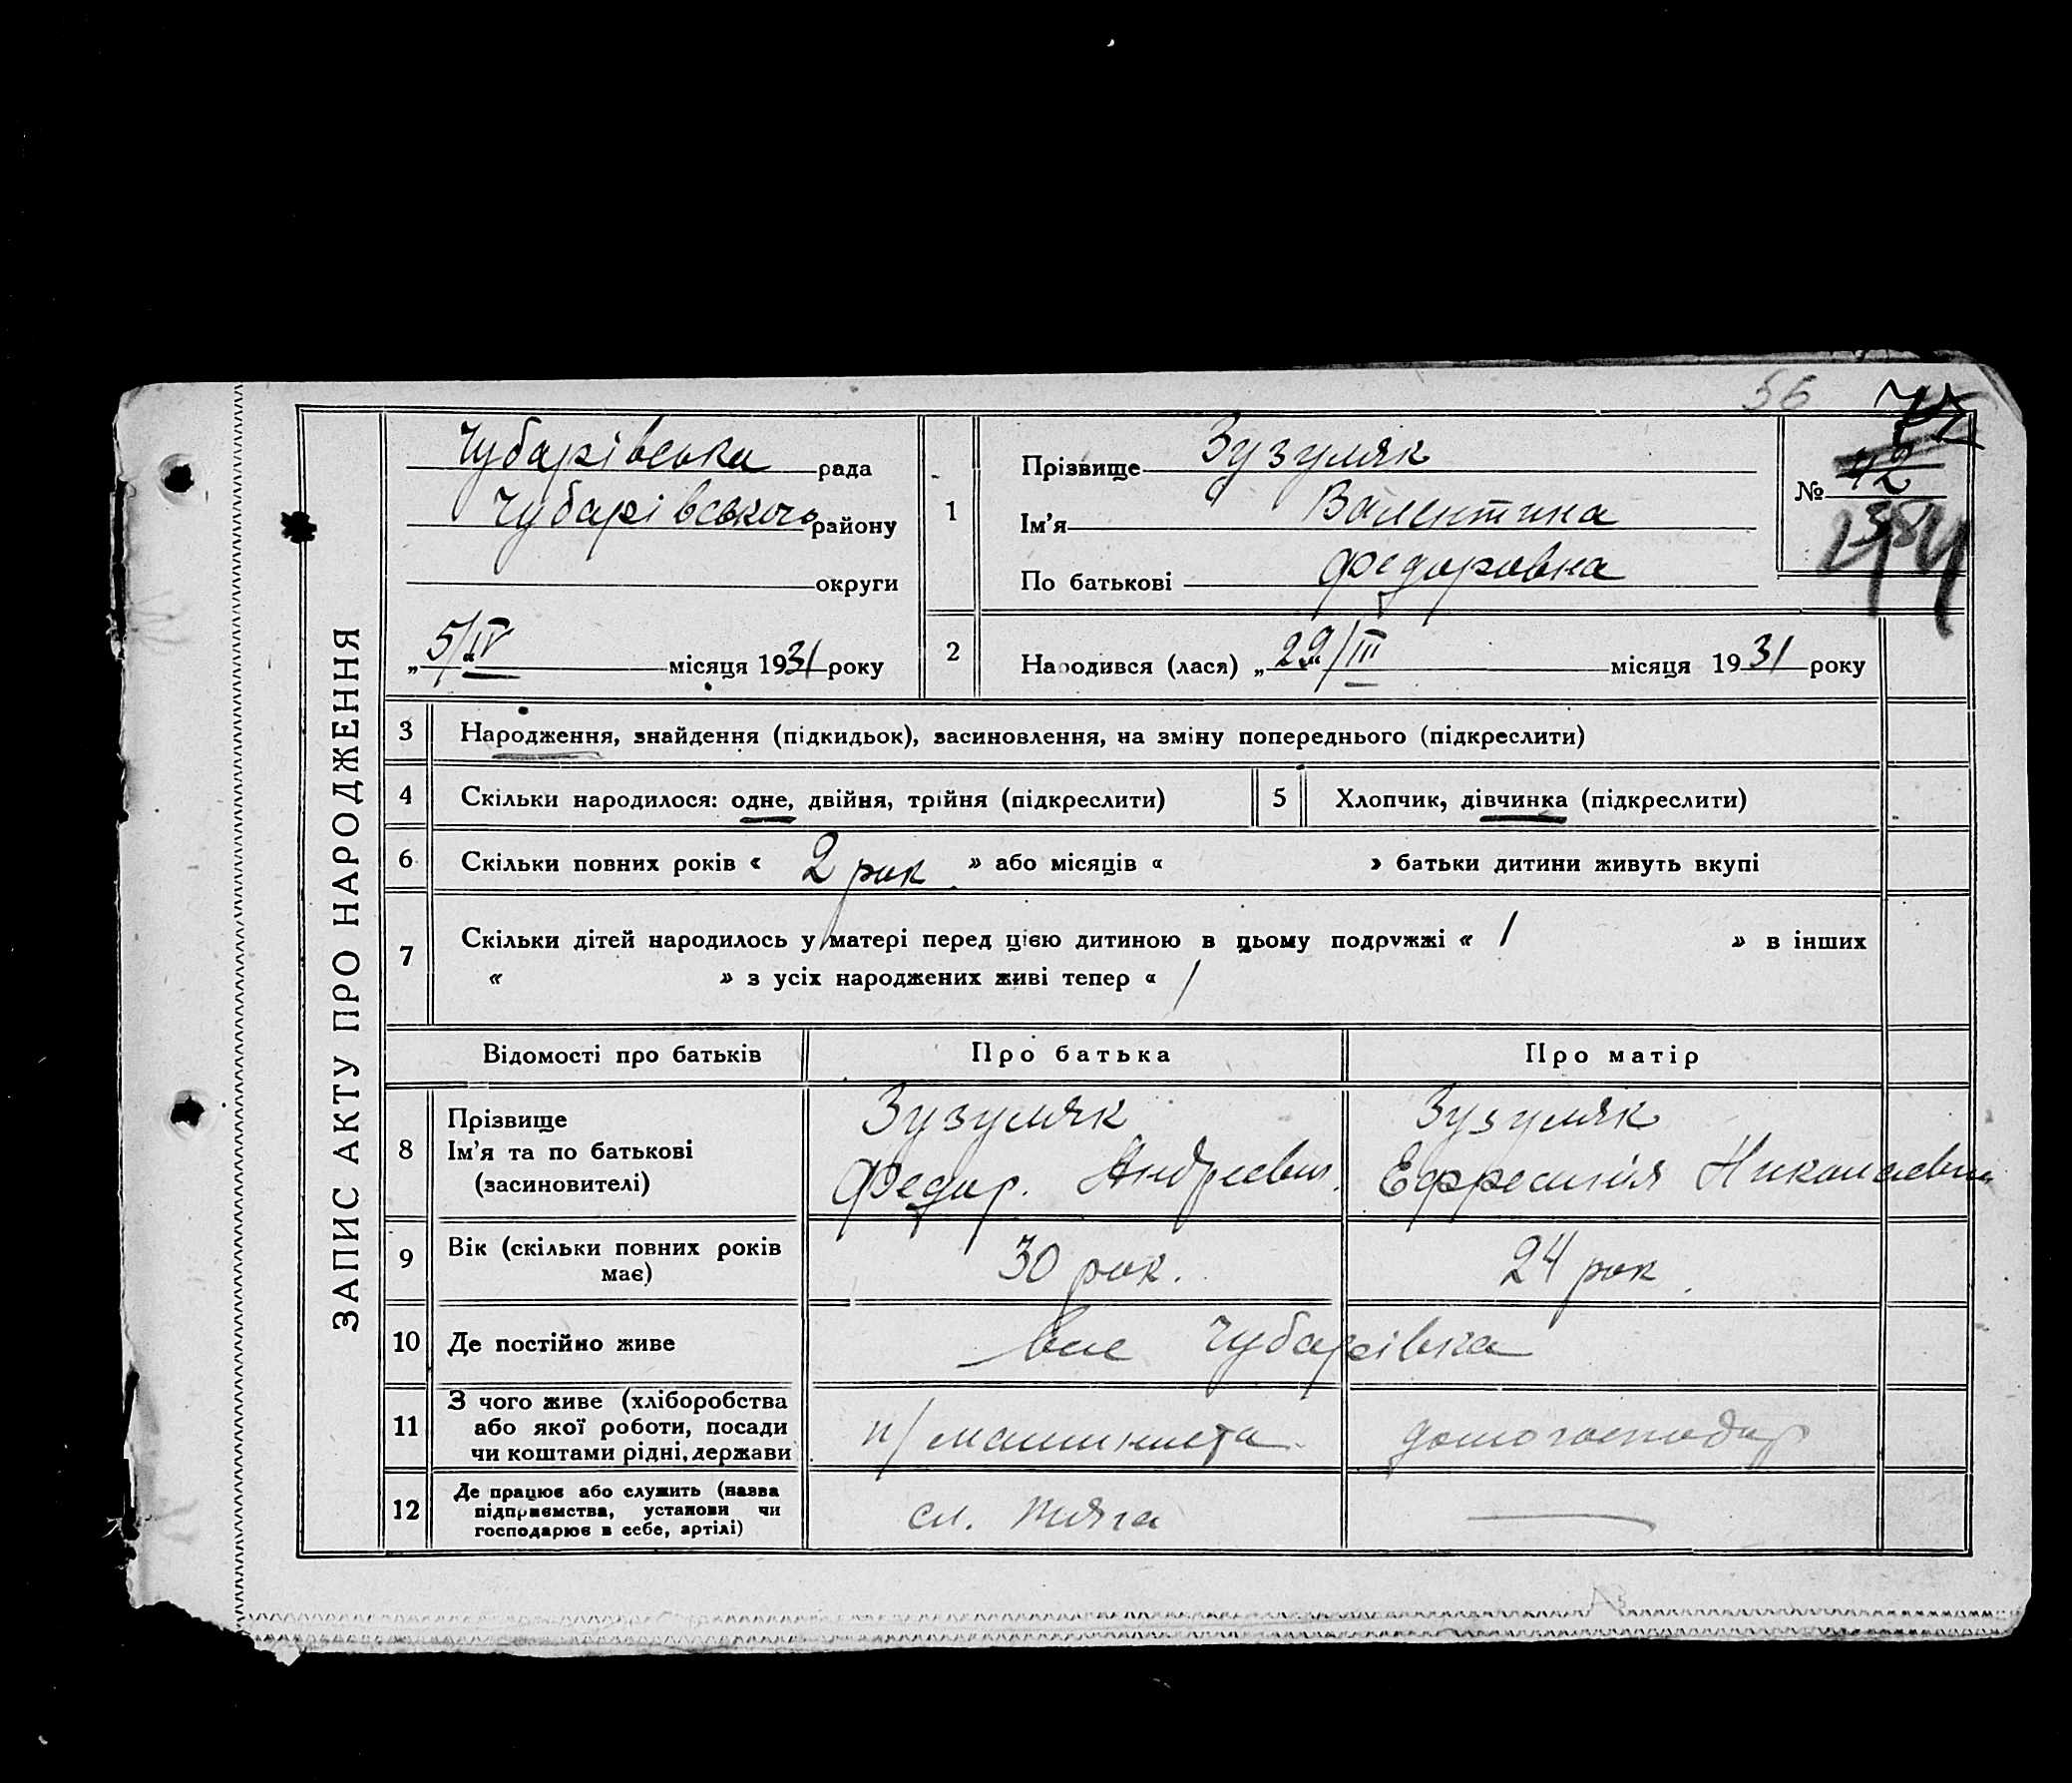 56
ЗАПИС АКТУ ПРО НАРОДЖЕННЯ
Чубарівська рада
Чубарівського району
округи
„5/IV“ місяця 1931 року
1
Прізвище Зузуляк
Ім'я Валентина
По батькові Федоровна
№ 42
2
Народився (лася) „29/III“ місяця 1931 року
3 Народження, знайдення (підкидьок), засиновлення, на зміну попереднього (підкреслити)
4 Скільки народилося: одне, двійня, трійня (підкреслити)
5 Хлопчик, дівчинка (підкреслити)
6 Скільки повних років « 2 рок » або місяців « » батьки дитини живуть вкупі
7 Скільки дітей народилось у матері перед цією дитиною в цьому подружжі « 1 » в інших
« » з усіх народжених живі тепер « 1
Відомості про батьків Про батька Про матір
8 Прізвище
Ім'я та по батькові
(засиновителі)
Зузуляк
Федор. Андреевич
Зузуляк
Ефросинія Николаевна
9 Вік (скільки повних років
має)
30 рок. 24 рок.
10 Де постійно живе Чубарівка
11 З чого живе (хліборобства
або якої роботи, посади
чи коштами рідні, держави
п/машиниста домогосподар
12 Де працює або служить (назва
підприємства, установи чи
господарює в себе, артілі)
сл. тяга